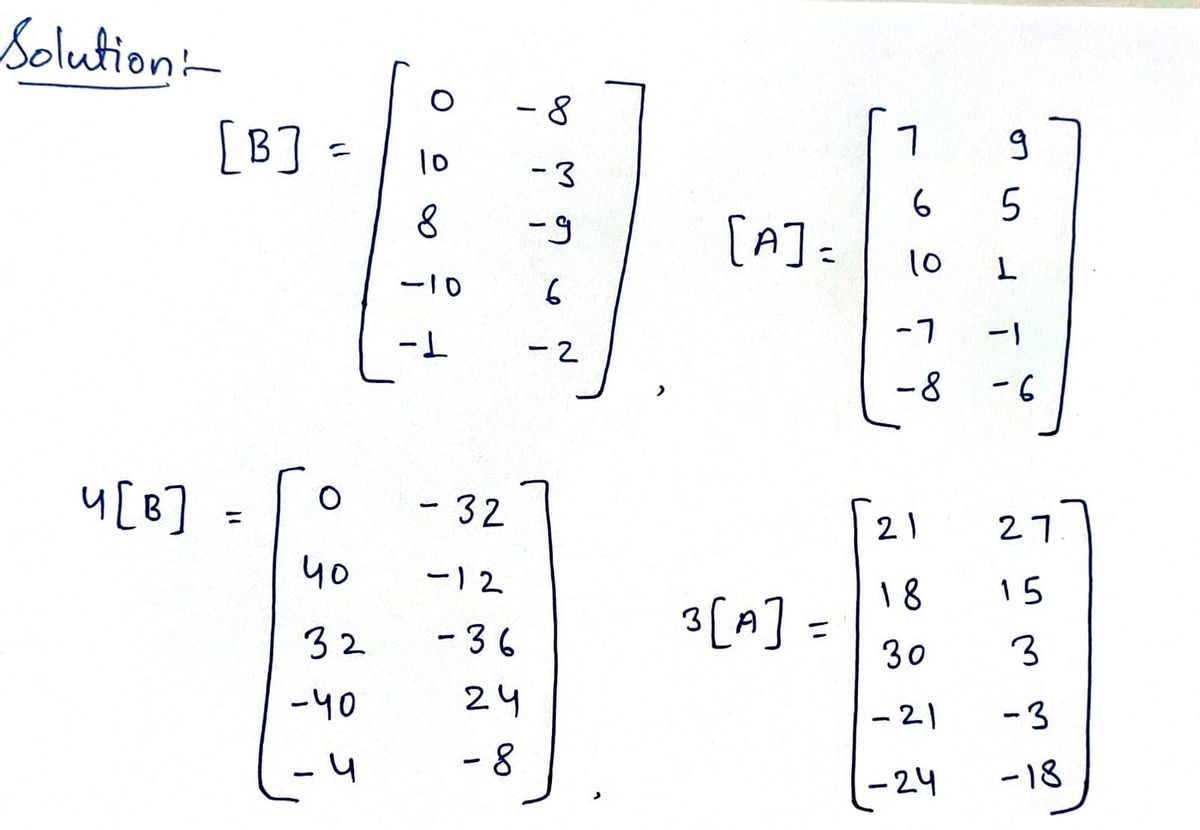 Solution:-
[B] = [ 0 -8
10 -3
8 -9
-10 6
-1 -2 ] ,
[A] = [ 7 9
6 5
10 1
-7 -1
-8 -6 ]
4[B] = [ 0 -32
40 -12
32 -36
-40 24
-4 -8 ] ,
3[A] = [ 21 27
18 15
30 3
-21 -3
-24 -18 ]